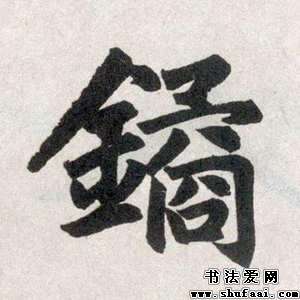 鐍
书法爱网
www.shufaai.com